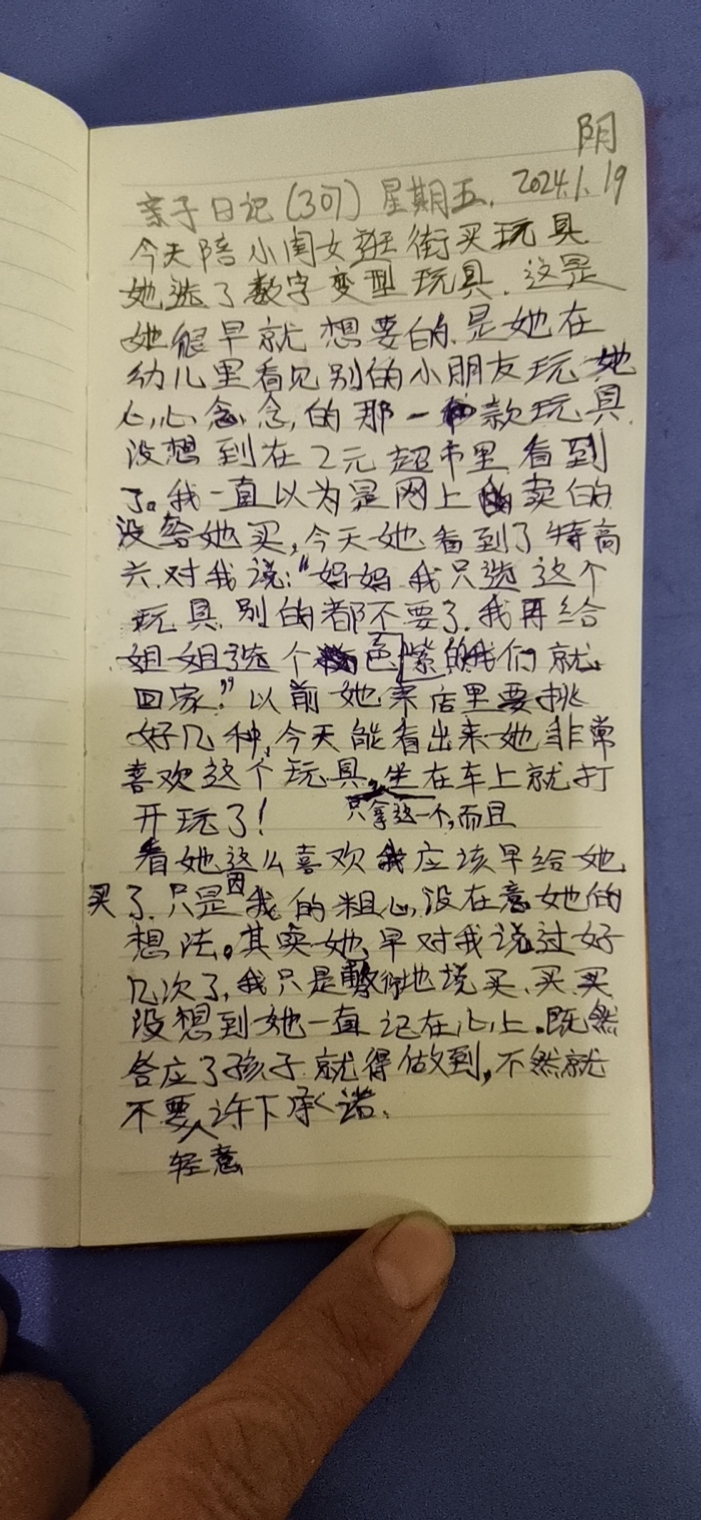 阴
亲子日记(307) 星期五. 2024.1.19
今天陪小闺女逛街买玩具
她选了数字变型玩具.这是
她很早就想要的.是她在
幼儿里看见别的小朋友玩她
心心念念,的那一款玩具.
没想到在2元超市里看到
了。我一直以为是网上卖的
没给她买,今天她看到了特高
兴.对我说:“妈妈我只选这个
玩具.别的都不要了.我再给
姐姐选个色紫的我们就
回家.”以前她来店里要挑
好几种,今天能看出来她非常
喜欢这个玩具,坐在车上就打
只拿这一个,而且
开玩了!
看她这么喜欢我应该早给她
买了.只是因我的粗心,没在意她的
想法。其实她早对我说过好
几次了,我只是敷衍地说买、买、买
没想到她一直记在心上.既然
答应了孩子就得做到,不然就
不要许下承诺.
轻意